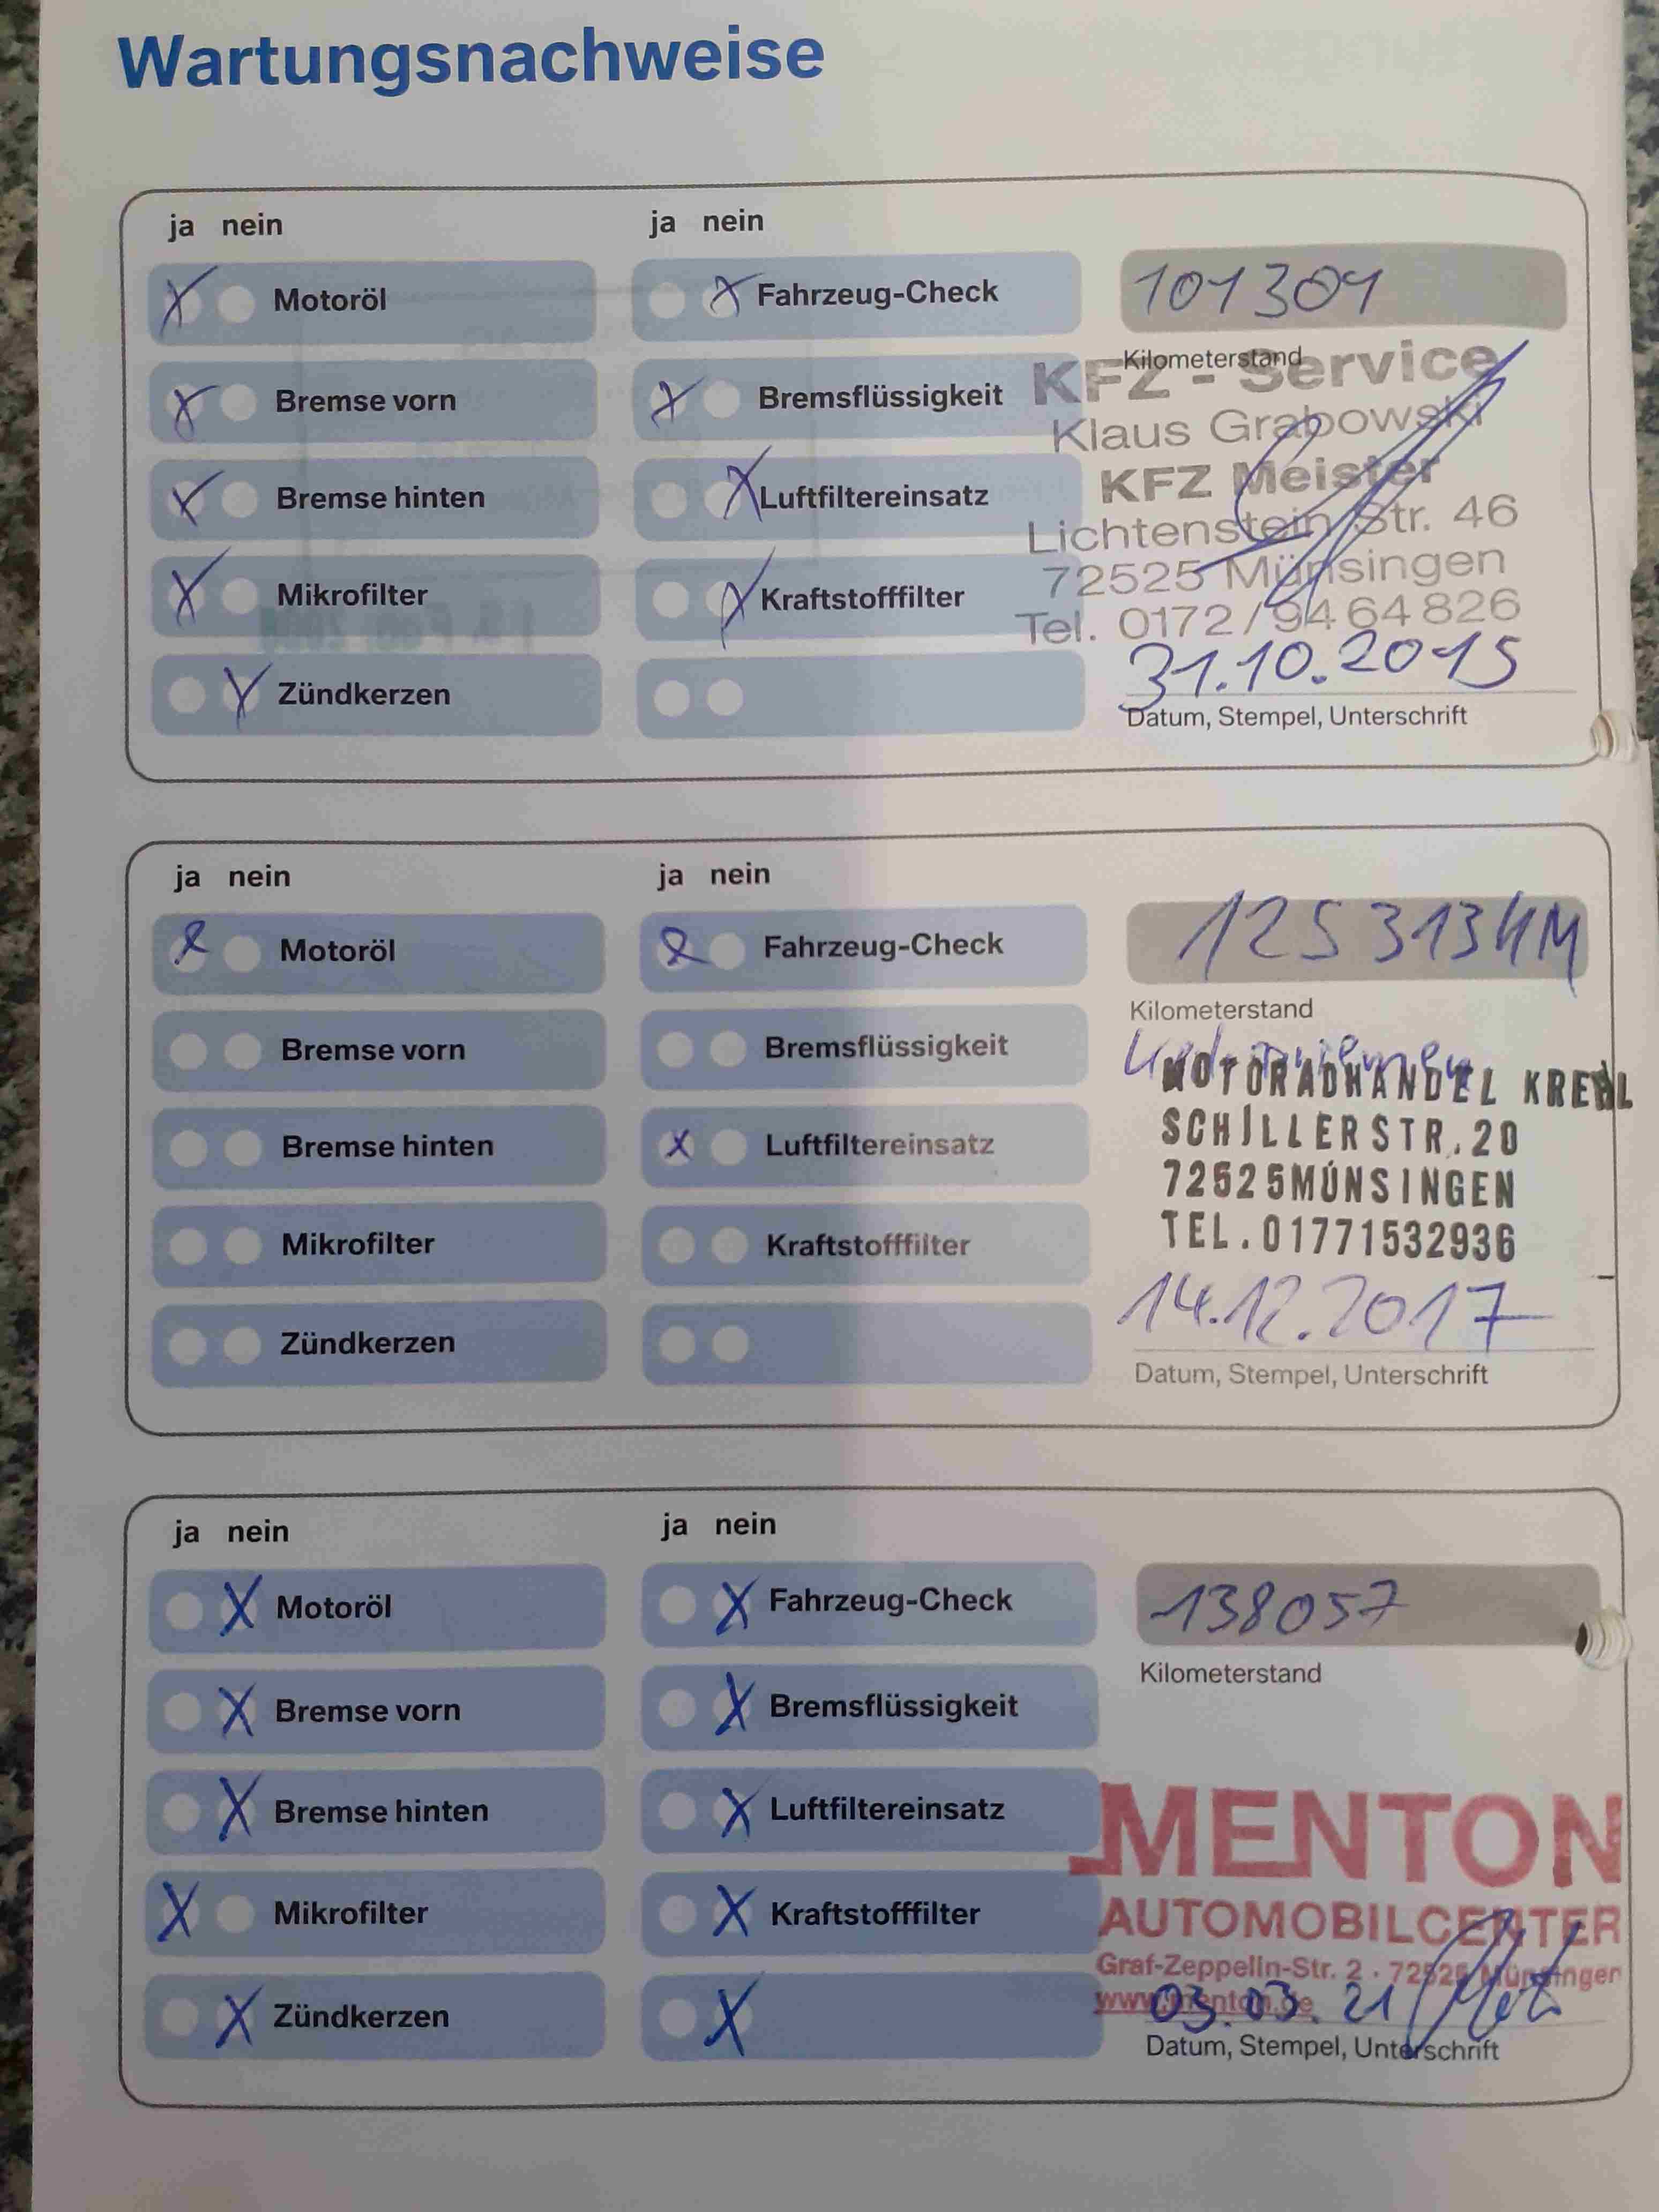 Wartungsnachweise
ja nein
ja nein
Motoröl
Fahrzeug-Check
101301
Kilometerstand
Bremse vorn
Bremsflüssigkeit
KFZ - Service
Klaus Grabowski
Bremse hinten
Luftfiltereinsatz
KFZ Meister
Lichtenstein Str. 46
Mikrofilter
Kraftstofffilter
72525 Münsingen
Tel. 0172/9464826
Zündkerzen
31.10.2015
Datum, Stempel, Unterschrift
ja nein
ja nein
Motoröl
Fahrzeug-Check
125313 KM
Kilometerstand
Bremse vorn
Bremsflüssigkeit
MOTORADHANDEL KREHL
Bremse hinten
Luftfiltereinsatz
SCHILLERSTR.20
72525MÜNSINGEN
Mikrofilter
Kraftstofffilter
TEL.01771532936
Zündkerzen
14.12.2017
Datum, Stempel, Unterschrift
ja nein
ja nein
Motoröl
Fahrzeug-Check
138057
Kilometerstand
Bremse vorn
Bremsflüssigkeit
Bremse hinten
Luftfiltereinsatz
MENTON
AUTOMOBILCENTER
Mikrofilter
Kraftstofffilter
Graf-Zeppelin-Str. 2 · 72525 Münsingen
www.menton.de
Zündkerzen
03.03.21
Datum, Stempel, Unterschrift